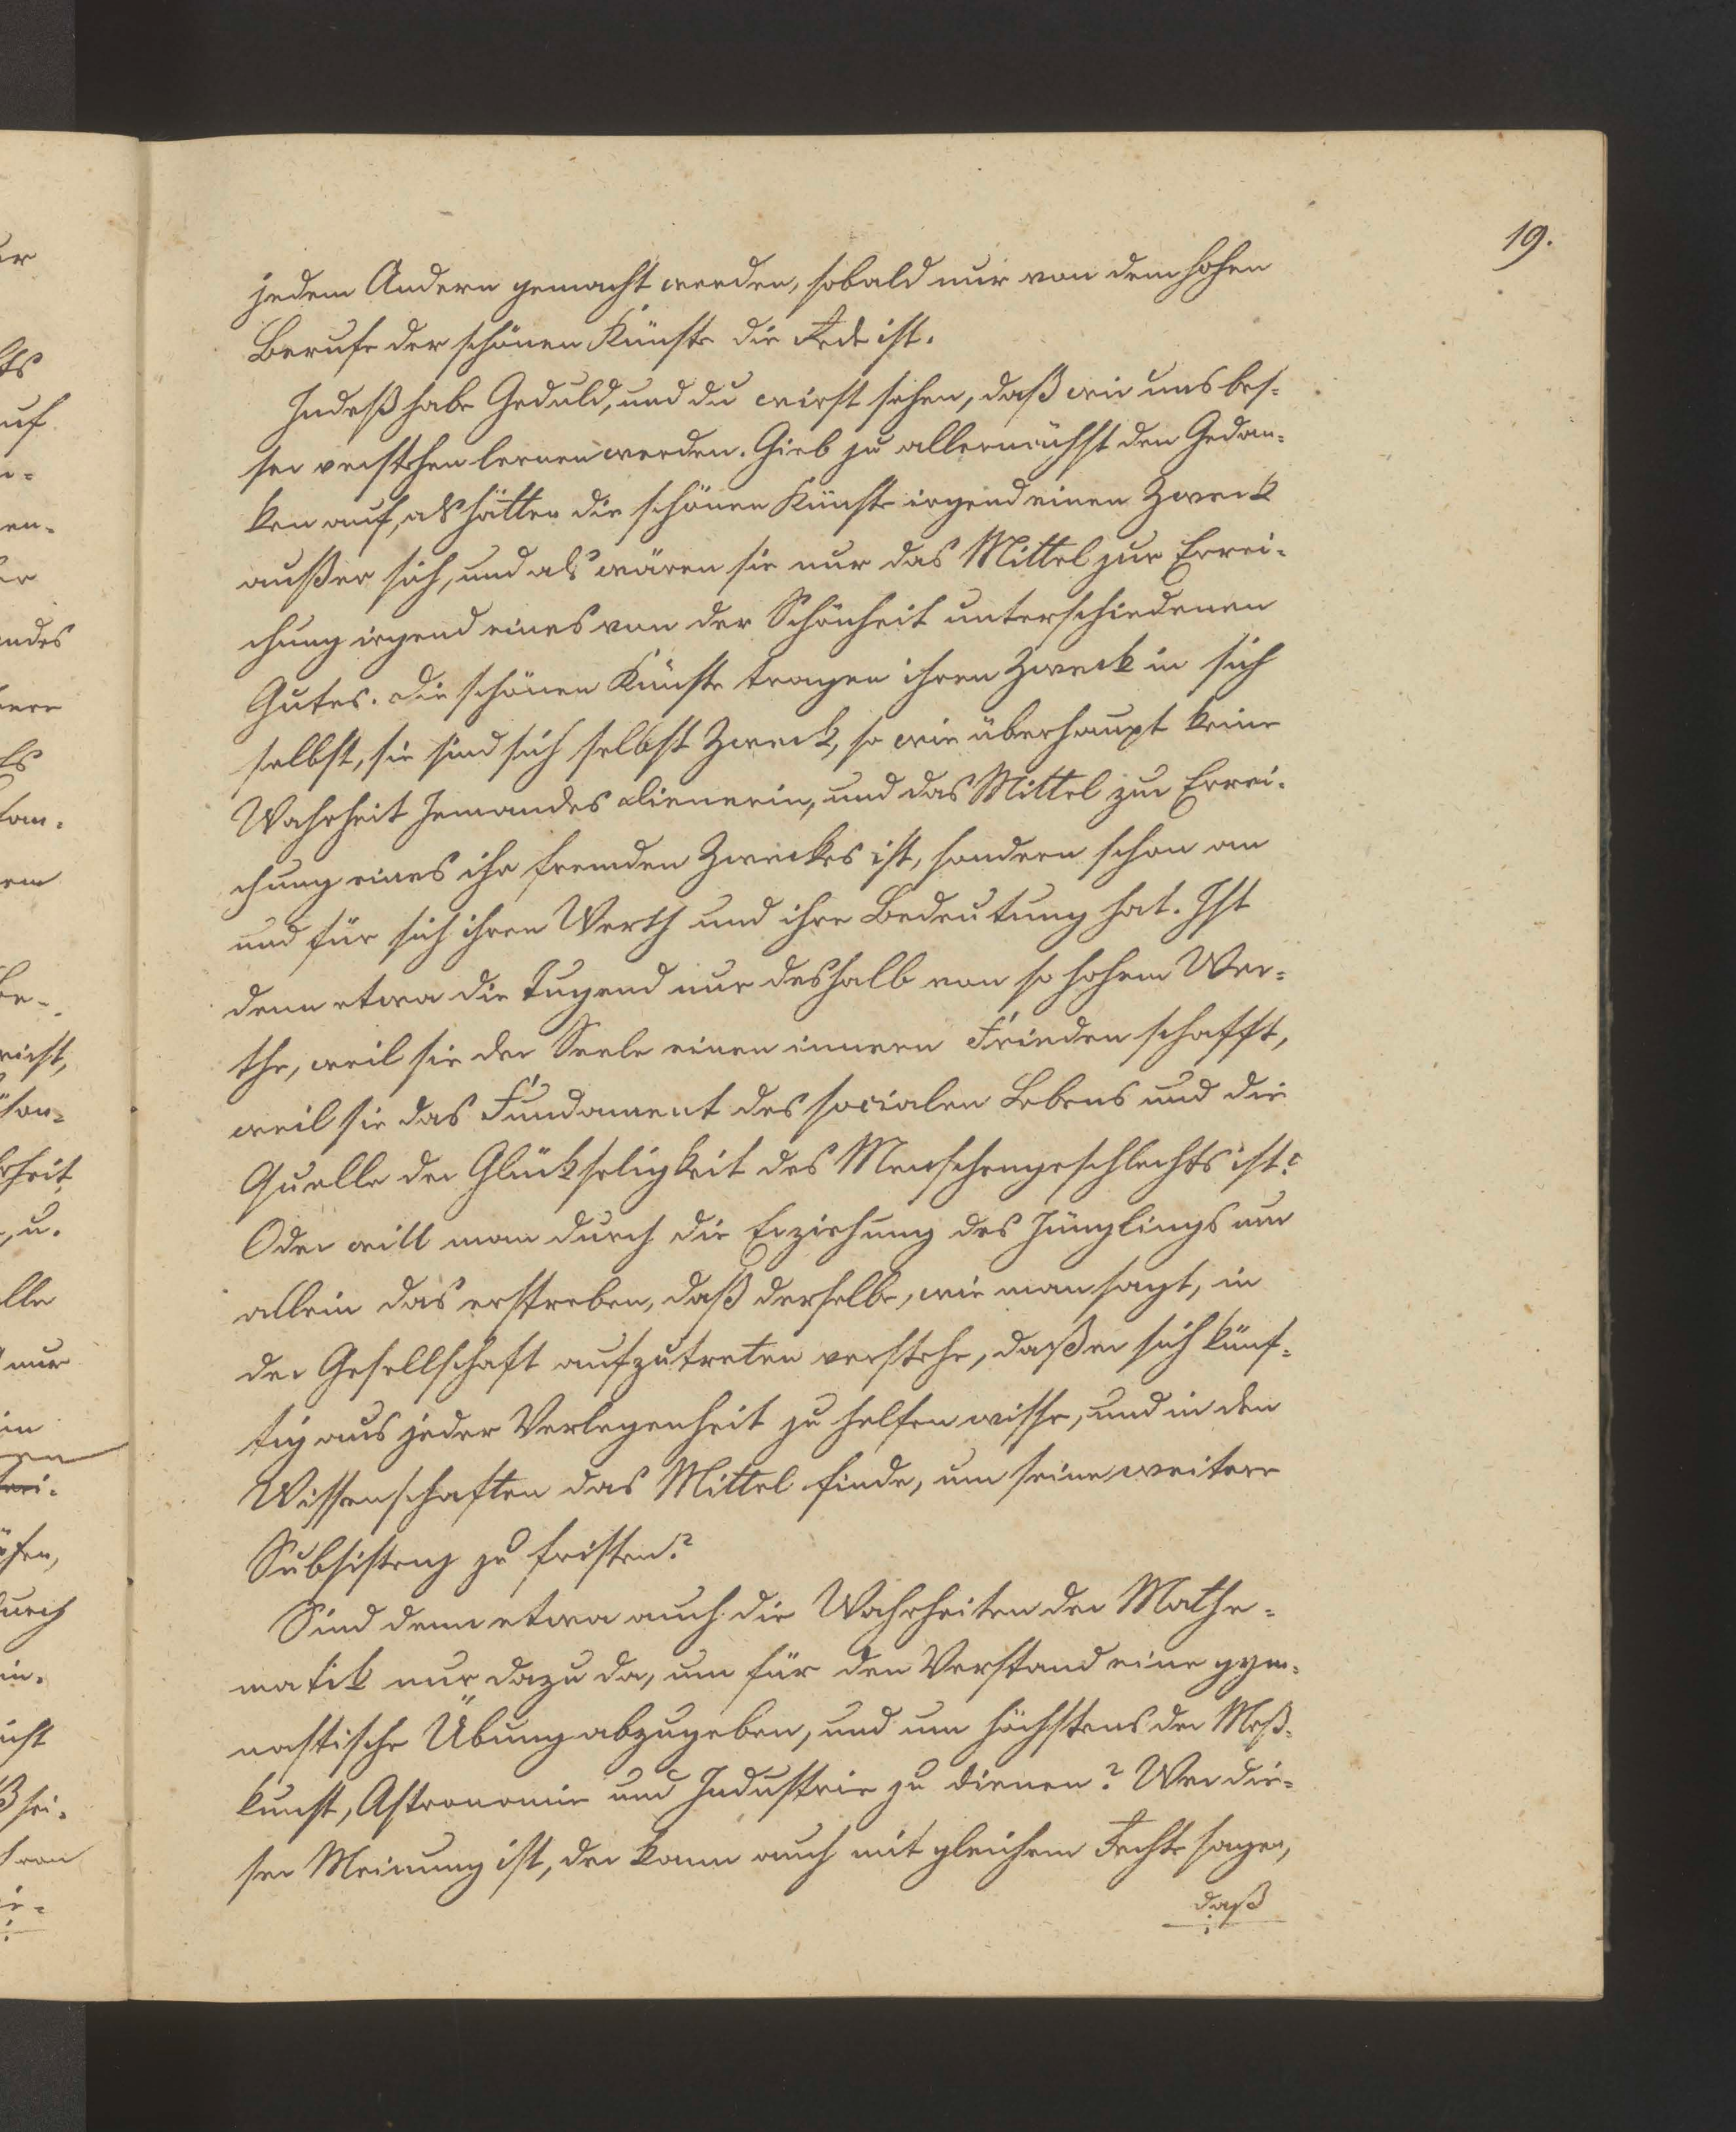 19.
jedem Andern gemacht werden, sobald nur von dem hohen
Berufe der schönen Künste die Rede ist.
Indeß habe Geduld, und du wirst sehen, daß wir uns bes-
ser verstehen lernen werden. Gieb zu allernächst den Gedan-
ken auf, als hätten die schönen Künste irgend einen Zweck
außer sich, und als wären sie nur das Mittel zur Errei-
chung irgend eines von der Schönheit unterschiedenen
Gutes. Die schönen Künste tragen ihren Zweck in sich
selbst, sie sind sich selbst Zweck, so wie überhaupt keine
Wahrheit Jemandes Dienerin, und das Mittel zur Errei-
chung eines ihr fremden Zweckes ist, sondern schon an
und für sich ihren Werth und ihre Bedeutung hat. Ist
denn etwa die Tugend nur deshalb von so hohem Wer-
the, weil sie der Seele einen innern Frieden schafft,
weil sie das Fundament des socialen Lebens und die
Quelle der Glückseligkeit des Menschengeschlechts ist?
Oder will man durch die Erziehung des Jünglings nur
allein das erstreben, daß derselbe, wie man sagt, in
der Gesellschaft aufzutreten verstehe, daß er sich künf-
tig aus jeder Verlegenheit zu helfen wisse, und in den
Wissenschaften das Mittel finde, um seine weitere
Subsistenz zu fristen?
Sind denn etwa auch die Wahrheiten der Mathe-
matik nur dazu da, um für den Verstand eine gym-
nastische Übung abzugeben, und um höchstens der Meß-
kunst, Astronomie und Industrie zu dienen? Wer die-
ser Meinung ist, der kann auch mit gleichem Rechte sagen,
daß